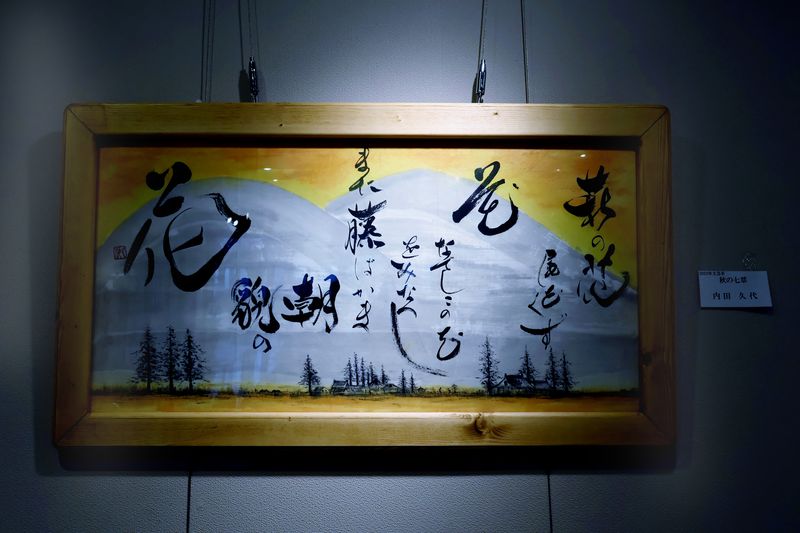 萩の花
尾花くず
花
なでしこの花
をみなへし
また藤はかま
朝
貌の
花
秋の七草
内田 久代